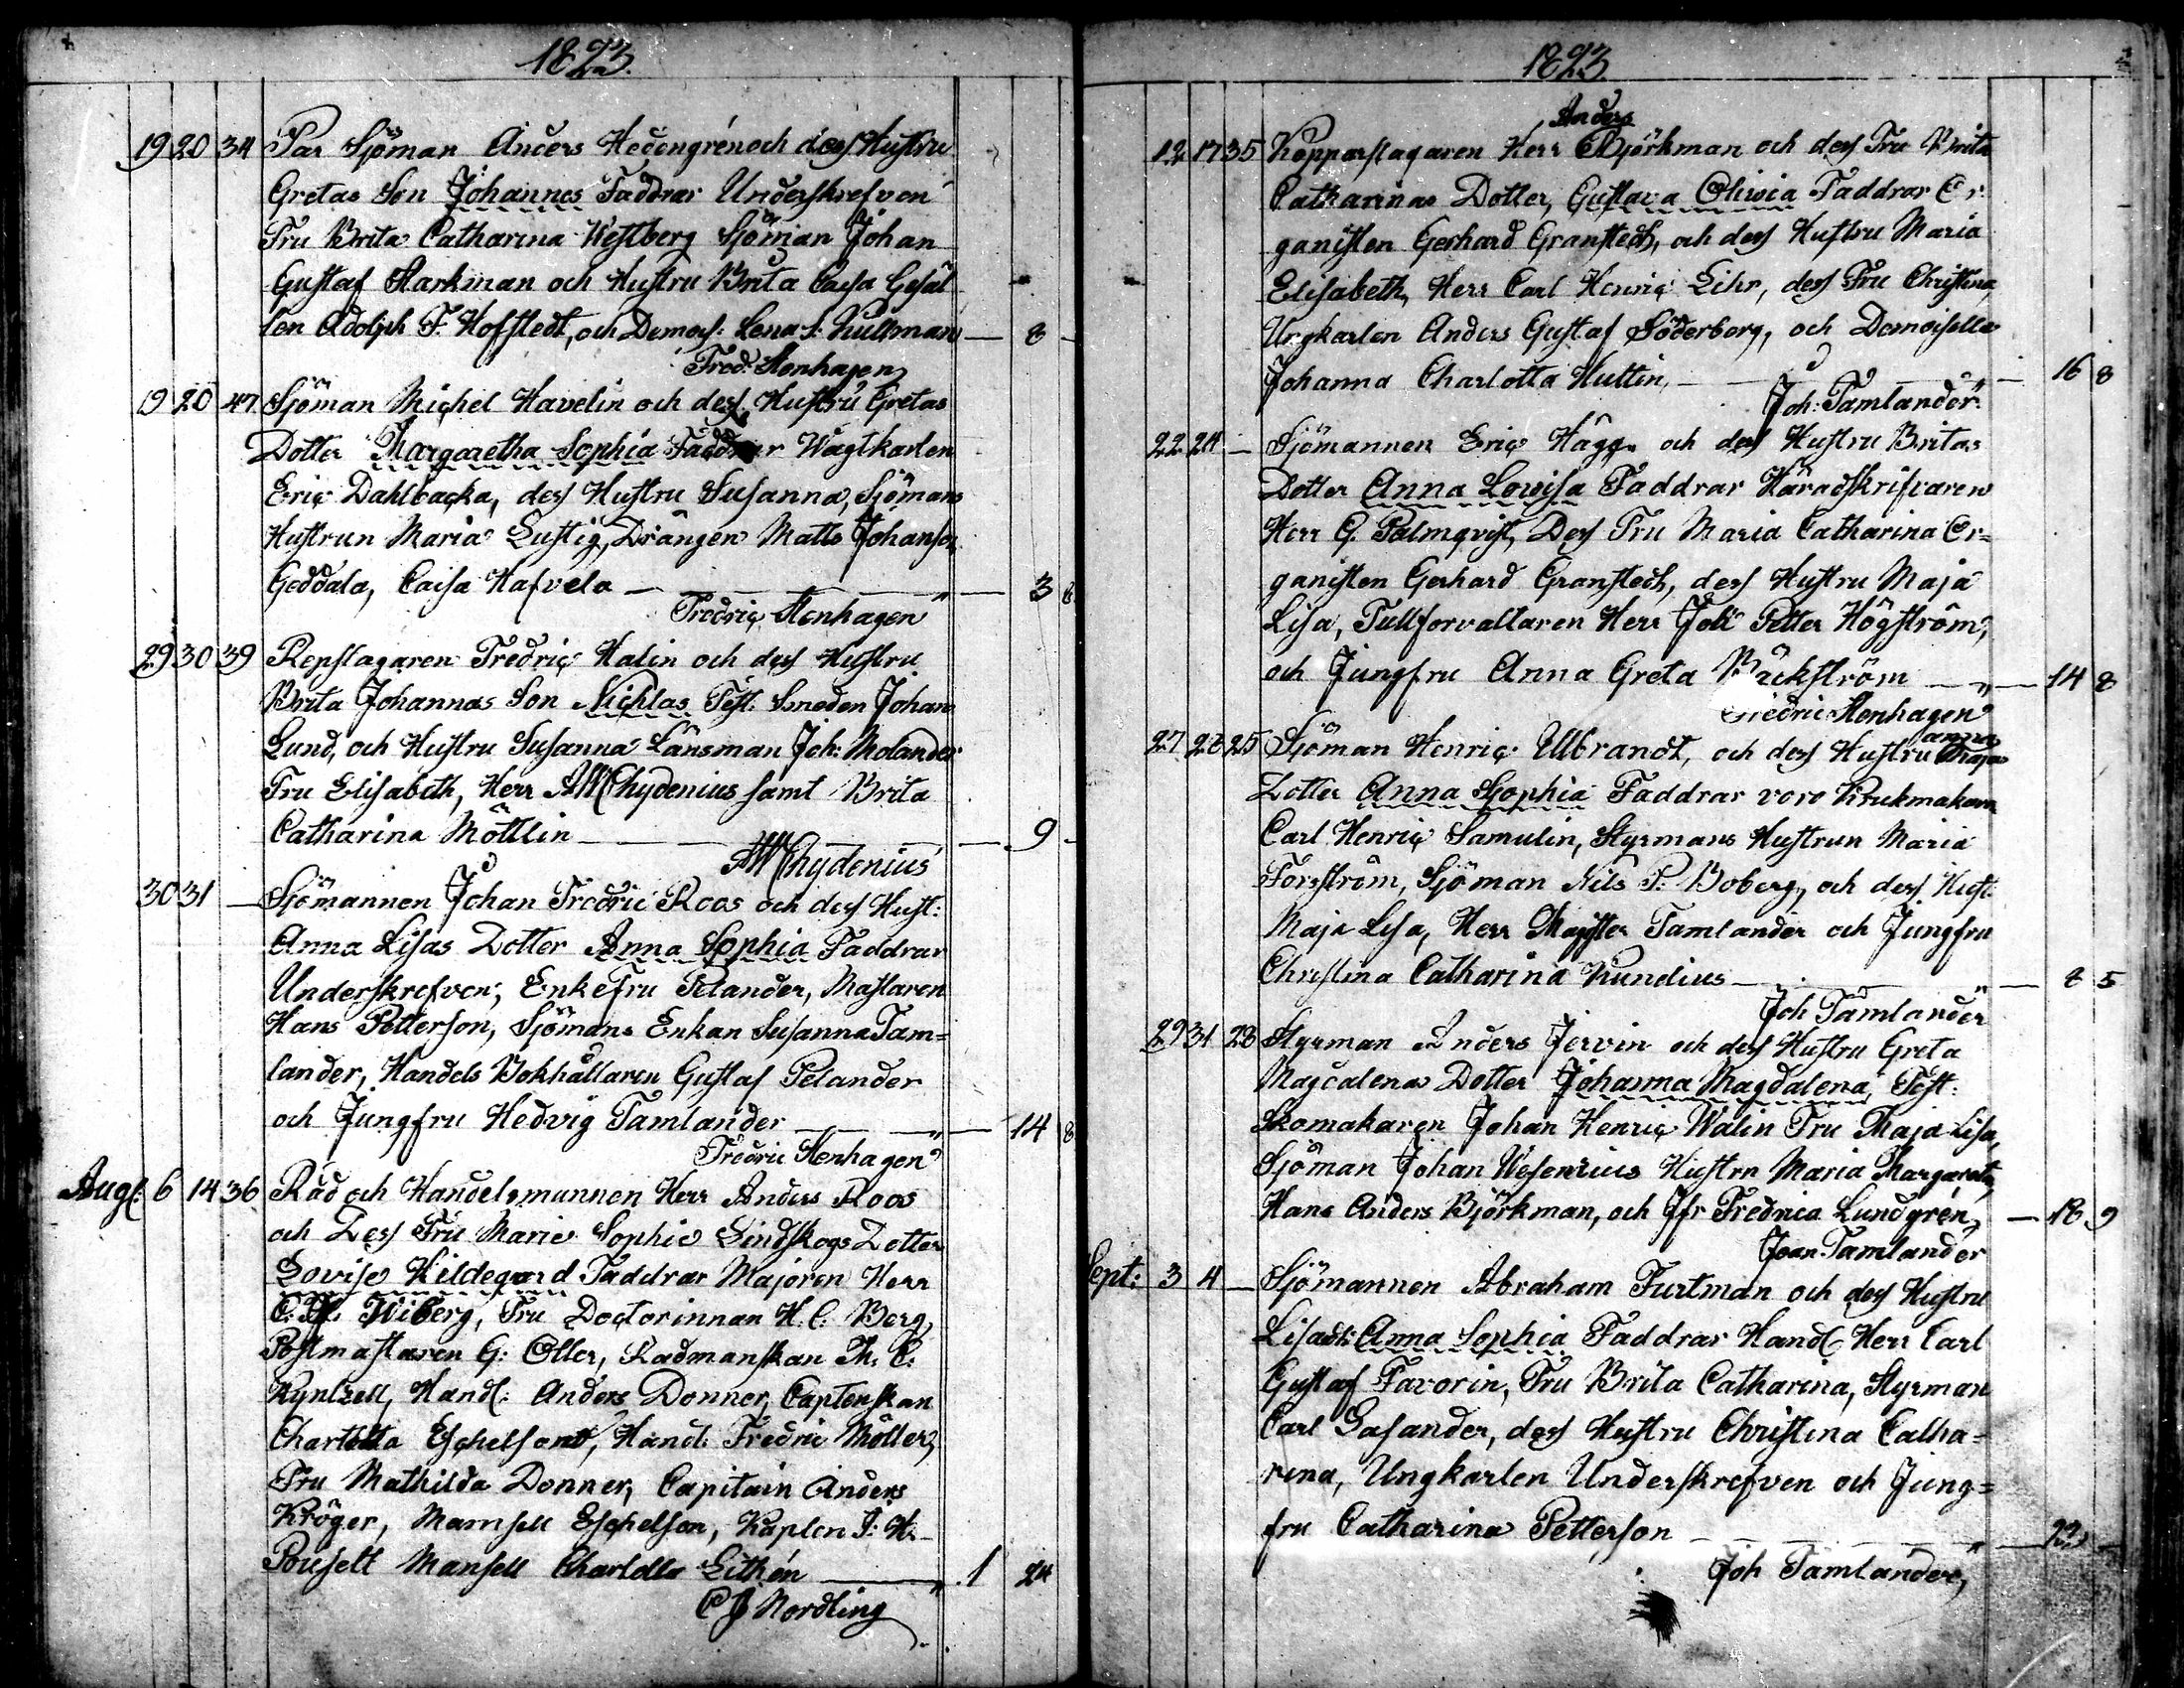 1823.
19 20 34 Par Sjöman Anders Hedengrén och dess Hustru
Gretas Son Johannes Faddrar Underskrefven
Fru Brita Catharina Westberg Sjöman Johan
Gustaf Starkman och Hustru Brita Caisa Gesäl
len Adolph F. Hofstedt, och Demois: Lena S: Kullman — 8 -
Fred: Stenhagen
19 20 47 Sjöman Michel Havelin och dess Hustru Gretas
Dotter Margaretha Sophia Faddrar Wagtkarlen
Eric Dahlbacka, dess Hustru Susanna, Sjömans
Hustrun Maria Lustig, Drängen Matts Johanson
Geddala, Caisa Hafvela — 3 8
Fredric Stenhagen
29 30 39 Repslagaren Fredric Halin och dess Hustru
Brita Johannas Son Nichlas Test. Smeden Johan
Lund, och Hustru Susanna Länsman Joh: Molander
Fru Elisabeth, Herr AWChydenius samt Brita
Catharina Möttlin — 9 -
AWChydenius
30 31 — Sjömannen Johan Fredric Roos och dess Hust:
Anna Lisas Dotter Anna Sophia Faddrar
Underskrefven, Enkefru Pelander, Mästaren
Hans Petterson, Sjömans Enkan Susanna Tam=
lander, Handels Bokhållaren Gustaf Pelander
och Jungfru Hedvig Tamlander — 14 8
Fredric Stenhagen
Aug: 6 14 36 Råd och Handelsmannen Herr Anders Roos
och Dess Fru Maria Sophia Lindskogs Dotter
Lovisa Hildegard Faddrar Majoren Herr
Wiberg, Fru Doctorinnan H. C. Berg,
Postmästaren G: Öller, Rådmanskan M. C.
Kyntzell, Handl: Anders Donner, Captenskan
Charlotta Eschelsont, Handl: Fredric Möller,
Fru Mathilda Donner, Capitain Anders
Kröger, Mamsell Eschelson, Kaplen J: H.
Pousett Mamsell Charlotta Lithén — 1 24
C J Nordling
1823
Anders
12 17 35 Kopparslagaren Herr Björkman och dess Fru Brita
Catharinas Dotter, Gustava Oliwia Faddrar Or
ganisten Gerhard Granstedt, och dess Hustru Maria
Elisabeth, Herr Carl Henric Lihr, dess Fru Christina,
Ungkarlen Anders Gustaf Söderberg, och Demoiselle
Johanna Charlotta Huttin, — 16 8
Joh: Tamlander
22 24 — Sjömannen Eric Hägg och dess Hustru Britas
Dotter Anna Lovisa Faddrar Häradskrifvaren
Herr G. Palmqvist, Dess Fru Maria Catharina Or=
ganisten Gerhard Granstedt, dess Hustru Maja
Lisa, Tullförvaltaren Herr Joh Petter Högström,
och Jungfru Anna Greta Bäckström — 14 8
Fredric Stenhagen
anna
27 28 25 Sjöman Henric Ulbrandt, och dess Hustru Majas
Dotter Anna Sophia Faddrar voro Krukmakaren
Carl Henric Samulin, Styrmans Hustrun Maria
Forsström, Sjöman Nils P: Boberg, och dess Hust:
Maja Lisa, Herr Magister Tamlander och Jungfru
Christina Catharina Kundius — 8 5
Joh Tamlander
29 31 28 Styrman Anders Jervin och dess Hustru Greta
Magdalenas Dotter Johanna Magdalena, Test:
Skomakaren Johan Henric Walin Fru Maja Lisa,
Sjöman Johan Wesenrius Hustru Maria Margareta,
Hans Anders Björkman, och Jfr Fredrica Lundgrén, — 18 9
Joan Tamlander
Sept: 3 4 — Sjömannen Abraham Furtman och dess Hustru
Lisas dr Anna Sophia Faddrar Handl: Herr Carl
Gustaf Favorin, Fru Brita Catharina, Styrman
Carl Gasander, dess Hustru Christina Catha=
rina, Ungkarlen Underskrefven och Jung=
fru Catharina Petterson — 22 -
Joh Tamlander,